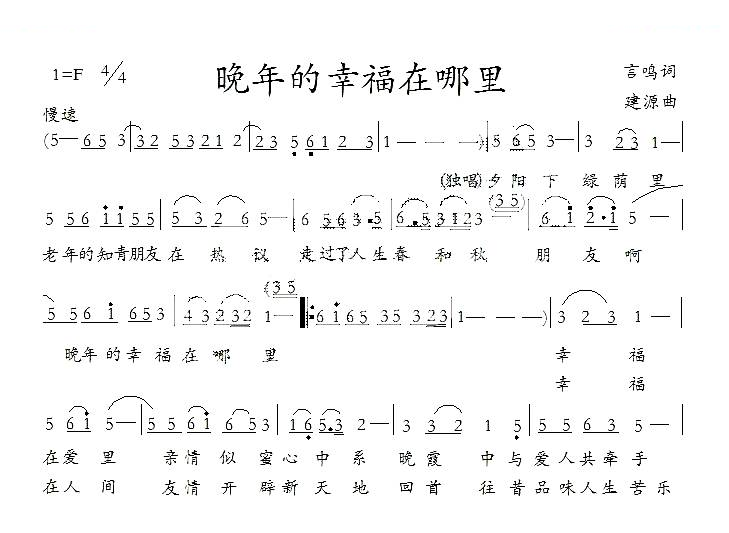 1=F 4/4 晚年的幸福在哪里 言鸣词
慢速 建源曲
(5— 65 3 32 5321 2 23 5 61 2 3 1 — — —) 5 65 3— 3 23 1—
(独唱)夕阳下绿荫里
5 56 11 55 5 3 2 6 5— 6 563 ·5 6·5312 3 (35) 6 1 2·1 5—
老年的知青朋友在热议走过了人生春和秋朋友啊
5 56 1 653 43 232 1— (35) 61 65 35 323 1— — —) 3 23 1 —
晚年的幸福在哪里 幸福
幸福
5 61 5— 55 61 6 5 3 1 65·3 2— 3 32 1 5 55 63 5—
在爱里亲情似蜜心中系晚霞中与爱人共牵手
在人间友情开辟新天地回首往昔品味人生苦乐